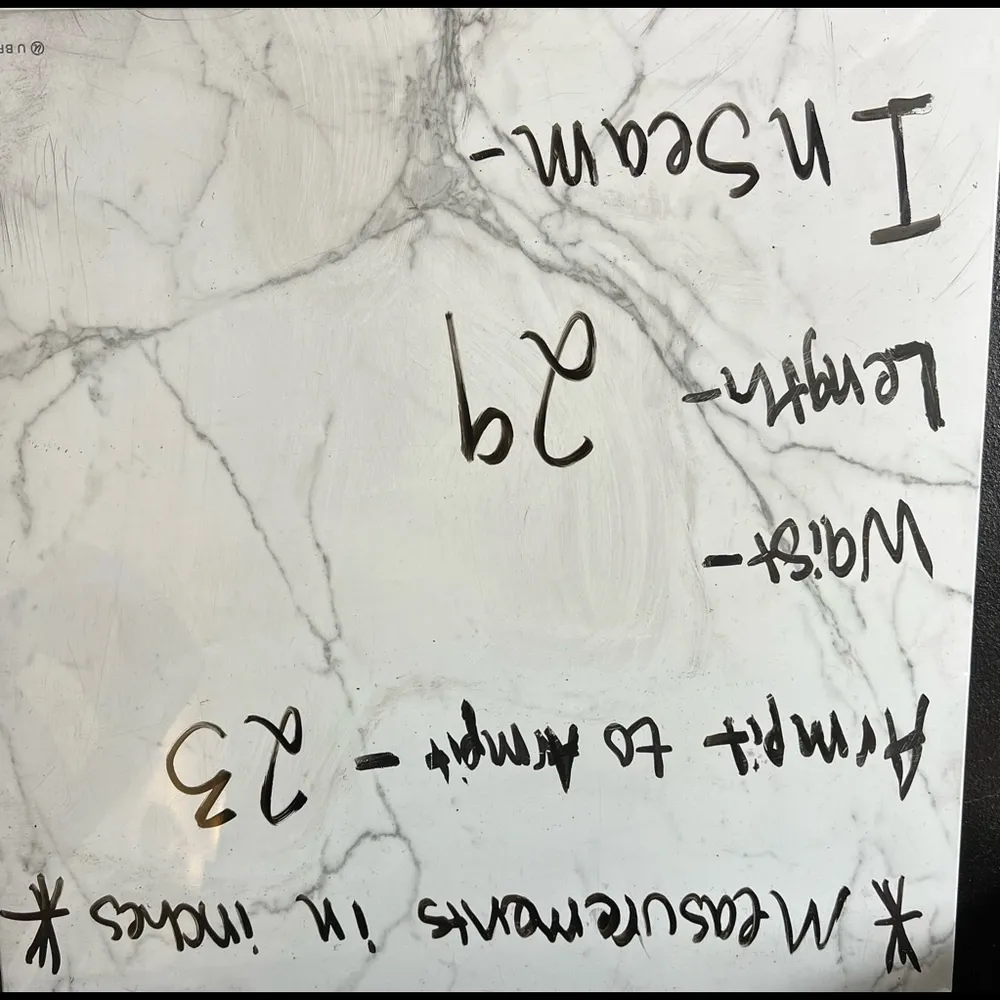 *Measurements in inches*
Armpit to Armpit - 23
Waist -
Length - 29
InSeam -